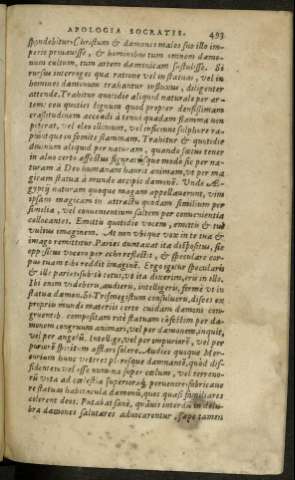 APOLOGIA SOCRATIS. 493
spondebitur, Christum & dæmones malos suo illo im-
perio priuauisse, & hominibus tum omnem dæmo-
num cultum, tum artem dæmonicam sustulisse. Si
rursus interroges qua ratione vel in statuas, vel in
homines dæmonum trahantur influxus, diligenter
attende. Trahitur quotidie aliquid naturale per ar-
tem: ceu quoties lignum quod propter densissimam
crassitudinem accendi à tenui quadam flamma non
poterat, vel oleo illinunt, vel inficiunt sulphure ra-
piúntque eo fomite flammam. Trahitur & quotidie
diuinum aliquid per naturam, quando fœtus tener
in aluo certo affectus figuraque modo sic per na-
turam à Deo humanam haurit animam, vt per ma
gicam statua à mundo accipit dæmonem. Vnde Æ-
gyptij naturam quoque magam appellauerunt, vim
ipsam magicam in attractu quodam similium per
similia, vel conuenientium saltem per conuenientia
collocantes. Emittis quotidie vocem, emittis & tui
vultus imaginem. At non vbique vox in te tua &
imago remittitur. Paries duntaxat ita dispositus, sic
oppositus vocem per echo reflectit, & speculare cor-
pus tuam tibi reddit imaginem. Ergo igitur specularis
& ille paries subito vetus, vt ita dixerim, erit in illo.
Ibi enim videberis, audieris, intelligeris, fermè vt in
statua dæmon. Si Trismegistum consulueris, disces ex
proprijs mundi materijs certe cuidam dæmoni con-
gruentib. compositam ritè statuam confestim per dæ-
monem congruum animari, vel per dæmonem, inquit,
vel per angelum. Intellige, vel per impuriorem, vel per
puriorem spiritum afflari solere. Audies quoque Mer-
curium huius veteres plerosque damnantem, quòd dif-
fidentes vel esse numina super cœlum, vel terreno-
rum vita ad cœlestia superiora peruenire, fabricaue
re statuas habitacula dæmonum, quos quasi familiares
colerent deos. Putabat sanè, quamuis interdum in delu-
bra dæmones salutares aduocarentur, sæpe tamen